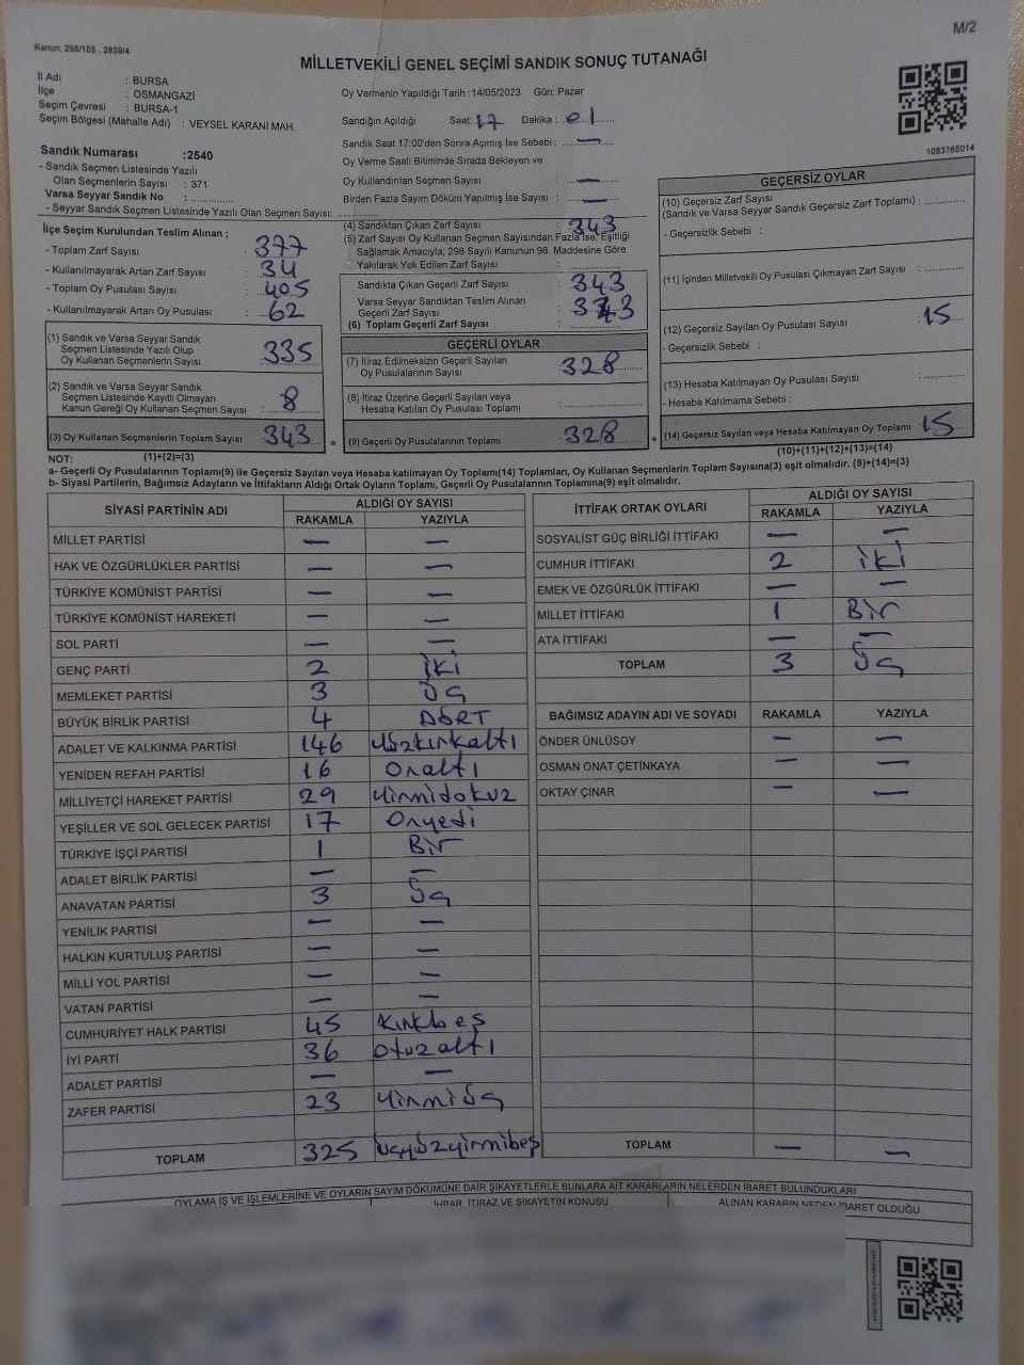 M/2
Kanun: 298/105, 2839/4
MİLLETVEKİLİ GENEL SEÇİMİ SANDIK SONUÇ TUTANAĞI
İl Adı : BURSA
İlçe : OSMANGAZİ
Seçim Çevresi : BURSA-1
Seçim Bölgesi (Mahalle Adı) : VEYSEL KARANİ MAH.
Oy Vermenin Yapıldığı Tarih :14/05/2023 Gün: Pazar
Sandığın Açıldığı Saat: 17 Dakika: 01
Sandık Saat 17:00'den Sonra Açılmış İse Sebebi : —
Oy Verme Saati Bitiminde Sırada Bekleyen ve
Oy Kullandırılan Seçmen Sayısı : —
Birden Fazla Sayım Döküm Yapılmış İse Sayısı : —
1083765014
Sandık Numarası :2540
- Sandık Seçmen Listesinde Yazılı
Olan Seçmenlerin Sayısı : 371
Varsa Seyyar Sandık No :
- Seyyar Sandık Seçmen Listesinde Yazılı Olan Seçmen Sayısı:
İlçe Seçim Kurulundan Teslim Alınan ;
- Toplam Zarf Sayısı : 377
- Kullanılmayarak Artan Zarf Sayısı : 34
- Toplam Oy Pusulası Sayısı : 405
- Kullanılmayarak Artan Oy Pusulası : 62
(1) Sandık ve Varsa Seyyar Sandık
Seçmen Listesinde Yazılı Olup
Oy Kullanan Seçmenlerin Sayısı : 335
(2) Sandık ve Varsa Seyyar Sandık
Seçmen Listesinde Kayıtlı Olmayan
Kanun Gereği Oy Kullanan Seçmen Sayısı : 8
(3) Oy Kullanan Seçmenlerin Toplam Sayısı : 343
(4) Sandıktan Çıkan Zarf Sayısı : 343
(5) Zarf Sayısı Oy Kullanan Seçmen Sayısından Fazla İse, Eşitliği
Sağlamak Amacıyla; 298 Sayılı Kanunun 98. Maddesine Göre
Yakılarak Yok Edilen Zarf Sayısı :
Sandıkta Çıkan Geçerli Zarf Sayısı : 343
Varsa Seyyar Sandıktan Teslim Alınan
Geçerli Zarf Sayısı :
(6) Toplam Geçerli Zarf Sayısı : 343
GEÇERLİ OYLAR
(7) İtiraz Edilmeksizin Geçerli Sayılan
Oy Pusulalarının Sayısı : 328
(8) İtiraz Üzerine Geçerli Sayılan veya
Hesaba Katılan Oy Pusulası Toplamı :
(9) Geçerli Oy Pusulalarının Toplamı : 328
GEÇERSİZ OYLAR
(10) Geçersiz Zarf Sayısı
(Sandık ve Varsa Seyyar Sandık Geçersiz Zarf Toplamı) :
- Geçersizlik Sebebi :
(11) İçinden Milletvekili Oy Pusulası Çıkmayan Zarf Sayısı :
(12) Geçersiz Sayılan Oy Pusulası Sayısı : 15
- Geçersizlik Sebebi :
(13) Hesaba Katılmayan Oy Pusulası Sayısı :
- Hesaba Katılmama Sebebi :
(14) Geçersiz Sayılan veya Hesaba Katılmayan Oy Toplamı : 15
NOT: (1)+(2)=(3) (10)+(11)+(12)+(13)=(14)
a- Geçerli Oy Pusulalarının Toplamı(9) ile Geçersiz Sayılan veya Hesaba katılmayan Oy Toplamı(14) Toplamları, Oy Kullanan Seçmenlerin Toplam Sayısına(3) eşit olmalıdır. (9)+(14)=(3)
b- Siyasi Partilerin, Bağımsız Adayların ve İttifakların Aldığı Ortak Oyların Toplamı, Geçerli Oy Pusulalarının Toplamına(9) eşit olmalıdır.
SİYASİ PARTİNİN ADI ALDIĞI OY SAYISI
RAKAMLA YAZIYLA
MİLLET PARTİSİ — —
HAK VE ÖZGÜRLÜKLER PARTİSİ — —
TÜRKİYE KOMÜNİST PARTİSİ — —
TÜRKİYE KOMÜNİST HAREKETİ — —
SOL PARTİ — —
GENÇ PARTİ 2 İKİ
MEMLEKET PARTİSİ 3 Üç
BÜYÜK BİRLİK PARTİSİ 4 DÖRT
ADALET VE KALKINMA PARTİSİ 146 Yüzkırkaltı
YENİDEN REFAH PARTİSİ 16 Onaltı
MİLLİYETÇİ HAREKET PARTİSİ 29 Yirmidokuz
YEŞİLLER VE SOL GELECEK PARTİSİ 17 Onyedi
TÜRKİYE İŞÇİ PARTİSİ 1 Bir
ADALET BİRLİK PARTİSİ — —
ANAVATAN PARTİSİ 3 Üç
YENİLİK PARTİSİ — —
HALKIN KURTULUŞ PARTİSİ — —
MİLLİ YOL PARTİSİ — —
VATAN PARTİSİ — —
CUMHURİYET HALK PARTİSİ 45 Kırkbeş
İYİ PARTİ 36 Otuzaltı
ADALET PARTİSİ — —
ZAFER PARTİSİ 23 Yirmiüç
TOPLAM 325 Üçyüzyirmibeş
İTTİFAK ORTAK OYLARI ALDIĞI OY SAYISI
RAKAMLA YAZIYLA
SOSYALİST GÜÇ BİRLİĞİ İTTİFAKI — —
CUMHUR İTTİFAKI 2 İKİ
EMEK VE ÖZGÜRLÜK İTTİFAKI — —
MİLLET İTTİFAKI 1 Bir
ATA İTTİFAKI — —
TOPLAM 3 Üç
BAĞIMSIZ ADAYIN ADI VE SOYADI RAKAMLA YAZIYLA
ÖNDER ÜNLÜSOY — —
OSMAN ONAT ÇETİNKAYA — —
OKTAY ÇINAR — —
TOPLAM — —
OYLAMA İŞ VE İŞLEMLERİNE VE OYLARIN SAYIM DÖKÜMÜNE DAİR ŞİKAYETLERLE BUNLARA AİT KARARLARIN NELERDEN İBARET BULUNDUKLARI
İHBAR, İTİRAZ VE ŞİKAYETİN KONUSU ALINAN KARARIN NEDEN İBARET OLDUĞU